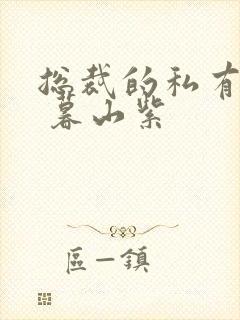 总裁的私有
暮山紫
區一鎮